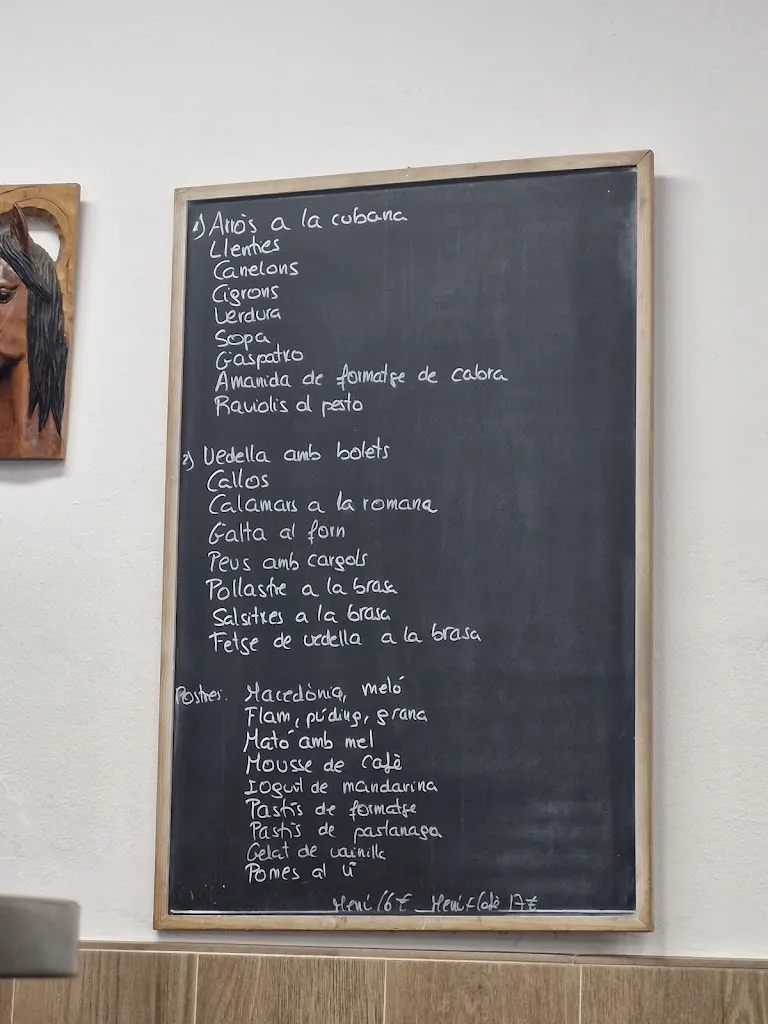 1) Arròs a la cubana
Llenties
Canelons
Cigrons
Verdura
Sopa
Gaspatxo
Amanida de formatge de cabra
Raviolis al pesto
2) Vedella amb bolets
Callos
Calamars a la romana
Galta al forn
Peus amb cargols
Pollastre a la brasa
Salsitxes a la brasa
Fetge de vedella a la brasa
Postres: Macedònia, meló
Flam, púding, grana
Mató amb mel
Mousse de cafè
Iogurt de mandarina
Pastís de formatge
Pastís de pastanaga
Gelat de vainilla
Pomes al vi
Menú 16€ Menú+Cafè 17€